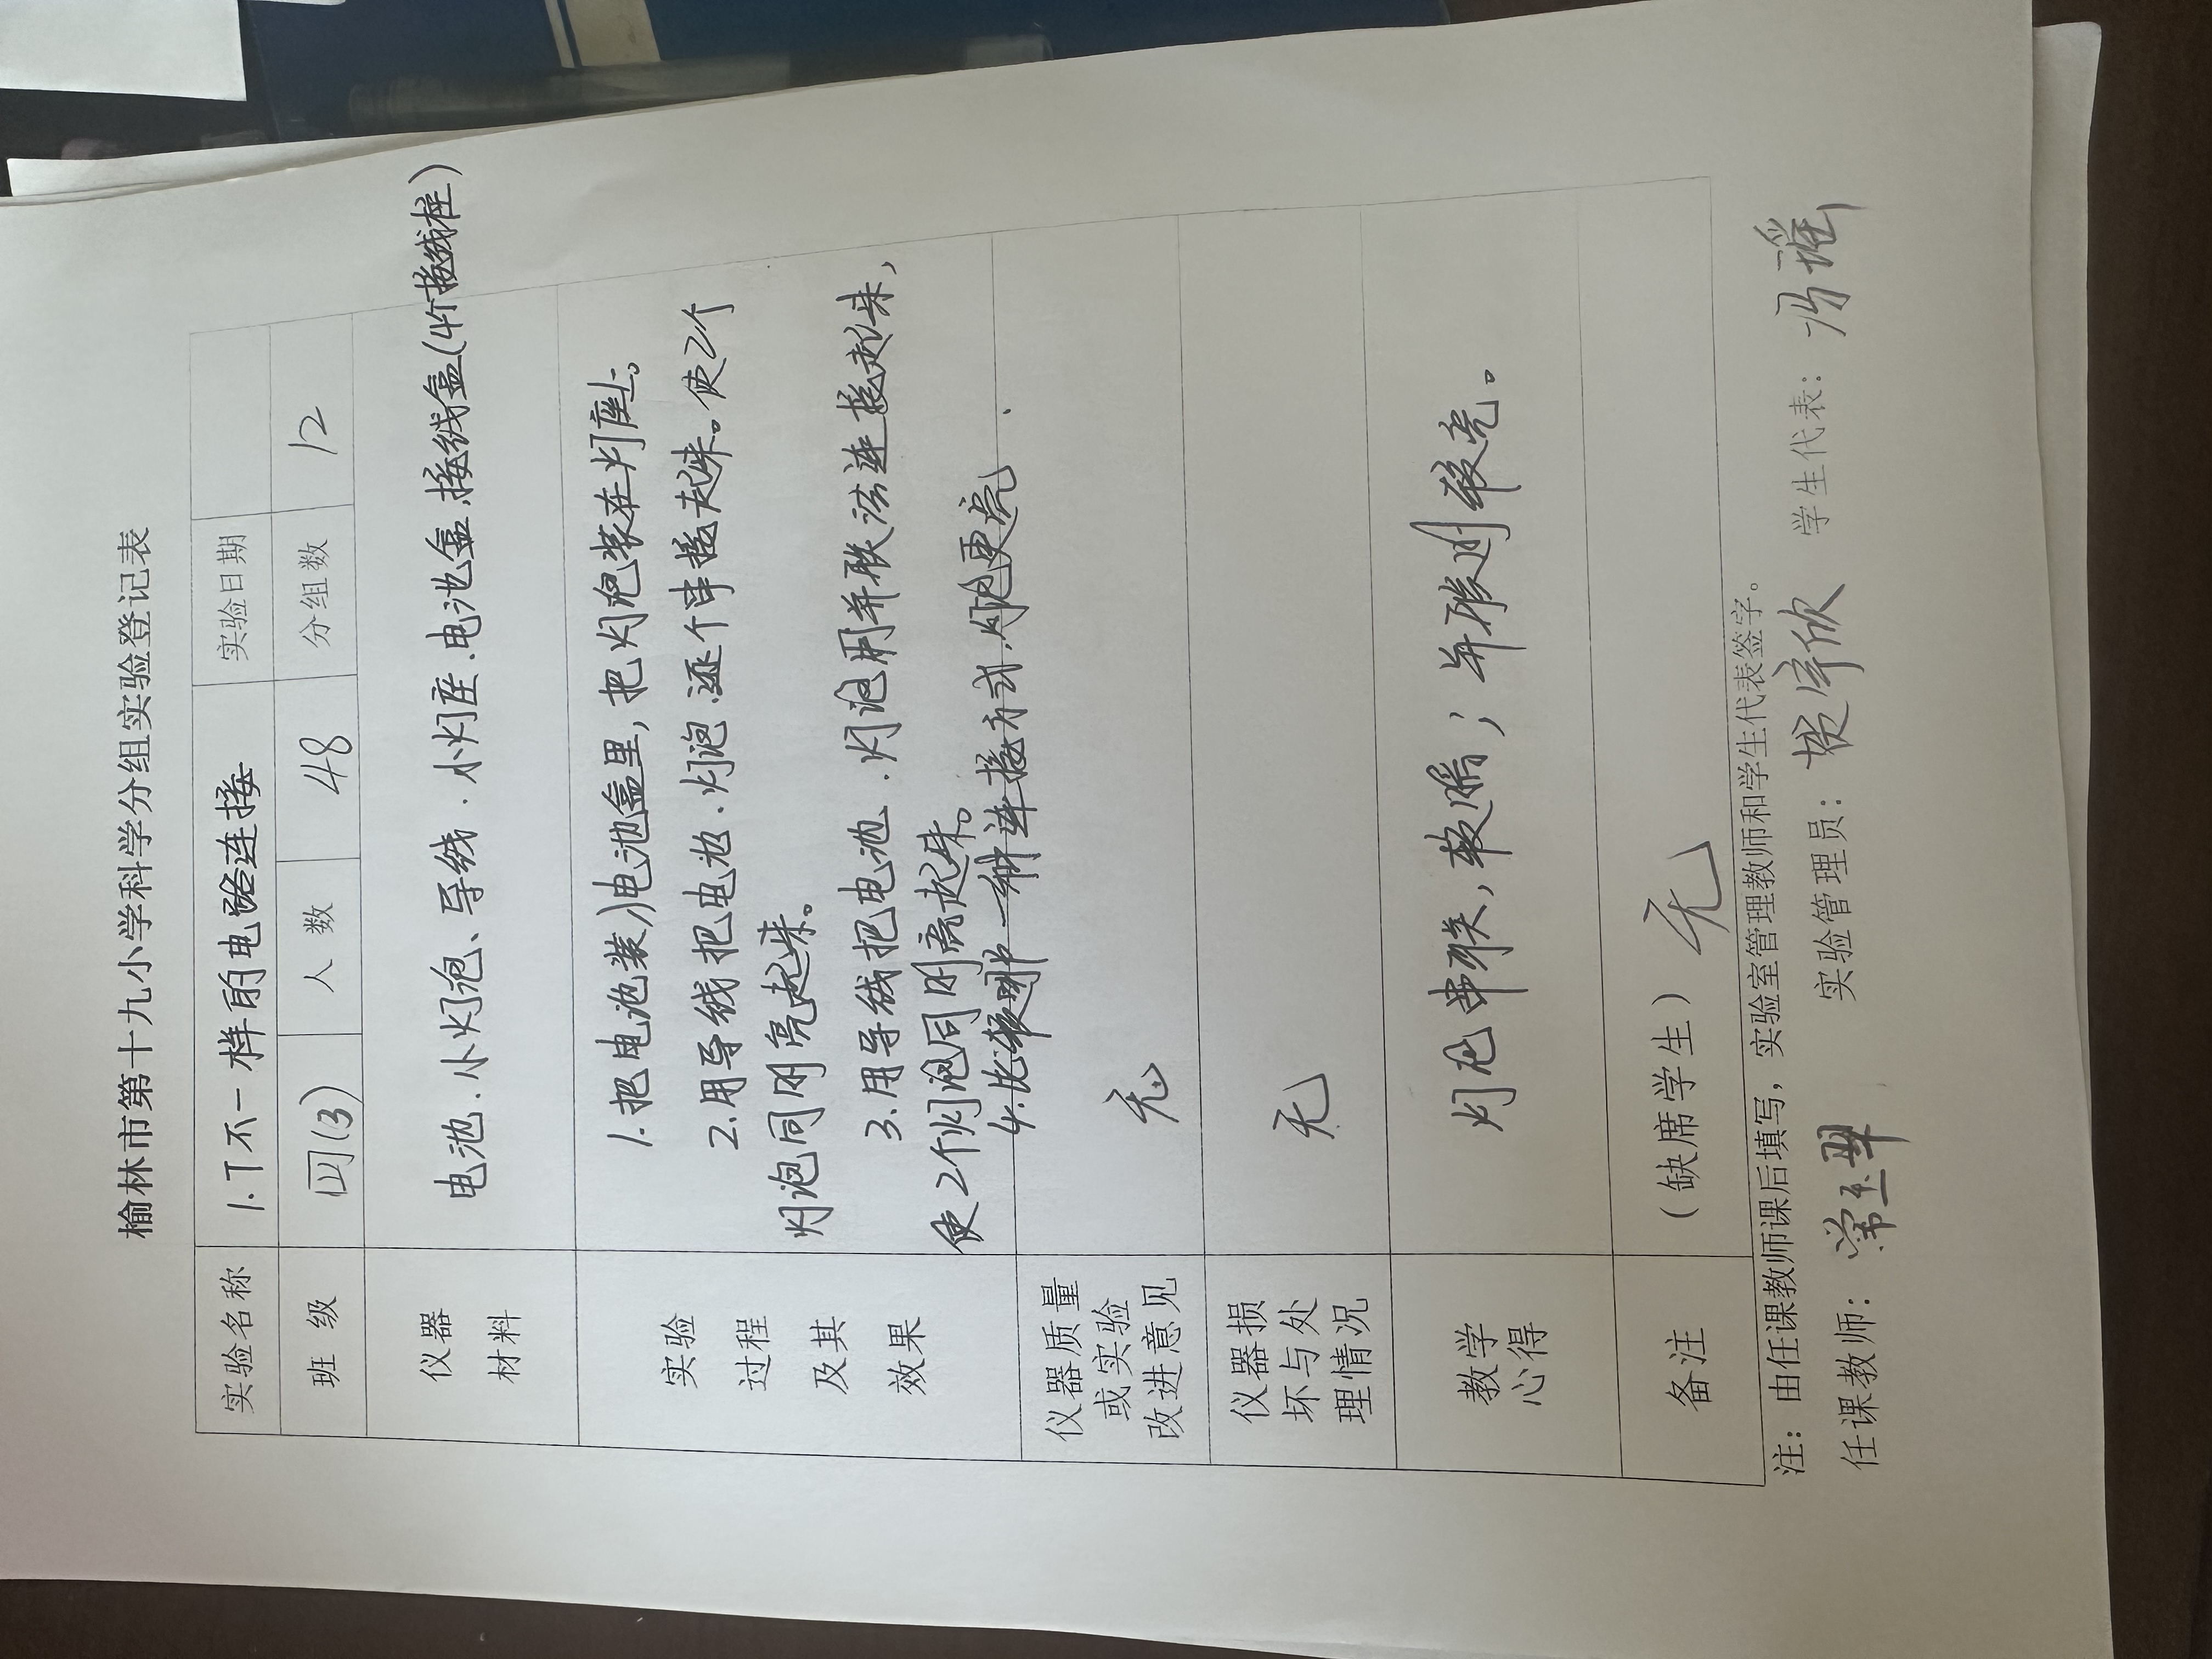 榆林市第十九小学科学分组实验登记表
实验名称 1.7不一样的电路连接 实验日期
班级 四(3) 人数 48 分组数 12
仪器
材料
电池、小灯泡、导线、小灯座、电池盒、接线盒(4个接线柱)
实验
过程
及其
效果
1.把电池装入电池盒里,把灯泡装在灯座上。
2.用导线把电池、灯泡逐个串接起来。使2个
灯泡同时亮起来。
3.用导线把电池、灯泡用并联法连接起来,
使2个灯泡同时亮起来。
4.比较哪一种连接方式,灯泡更亮
仪器质量
或实验
改进意见
无
仪器损
坏与处
理情况
无
教学
心得
灯泡串联,较暗;并联则较亮。
备注
(缺席学生) 无
注:由任课教师课后填写,实验室管理教师和学生代表签字。
任课教师: 实验管理员: 学生代表: